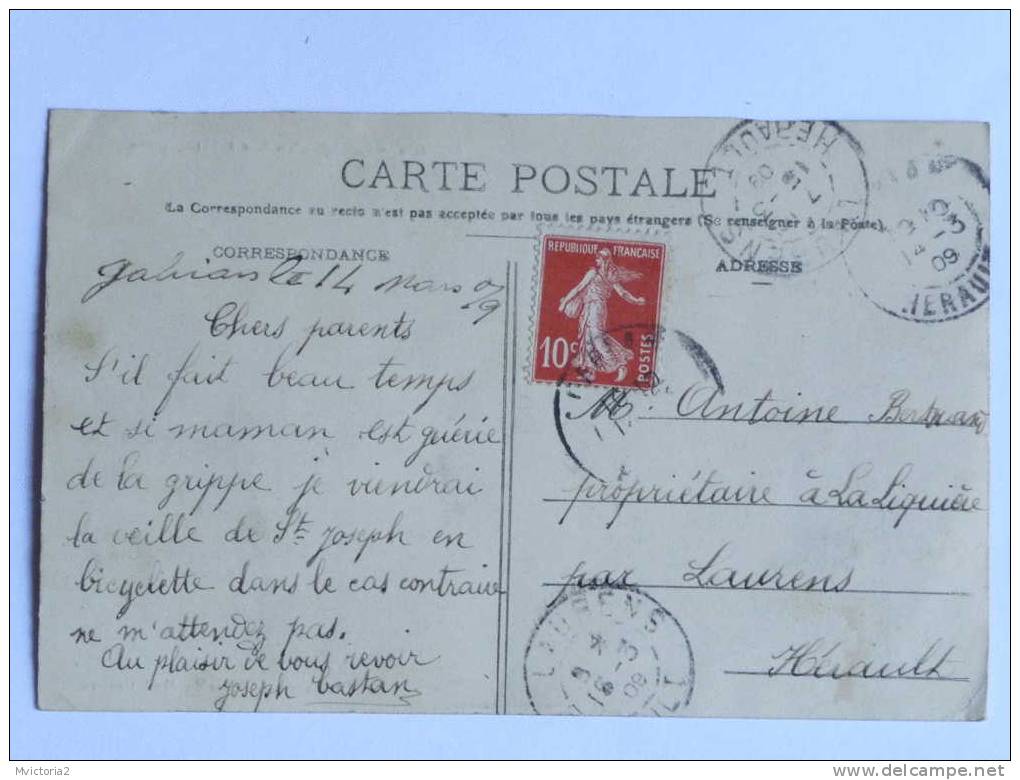 CARTE POSTALE
La Correspondance au recto n'est pas acceptée par tous les pays étrangers (Se renseigner à la Poste).
CORRESPONDANCE
ADRESSE
Gabian le 14 Mars 09
Chers parents
S'il fait beau temps
et si maman est guérie
de la grippe je viendrai
la veille de St Joseph en
bicyclette dans le cas contraire
ne m'attendez pas.
Au plaisir de vous revoir
Joseph
REPUBLIQUE FRANÇAISE
10c POSTES
Mr. Antoine
propriétaire à La Liquière
par Laurens
Hérault
HERAULT
14 -3 09
HERAULT
LAURENS
16 -3 09
Mvictoria2
delcampe.net